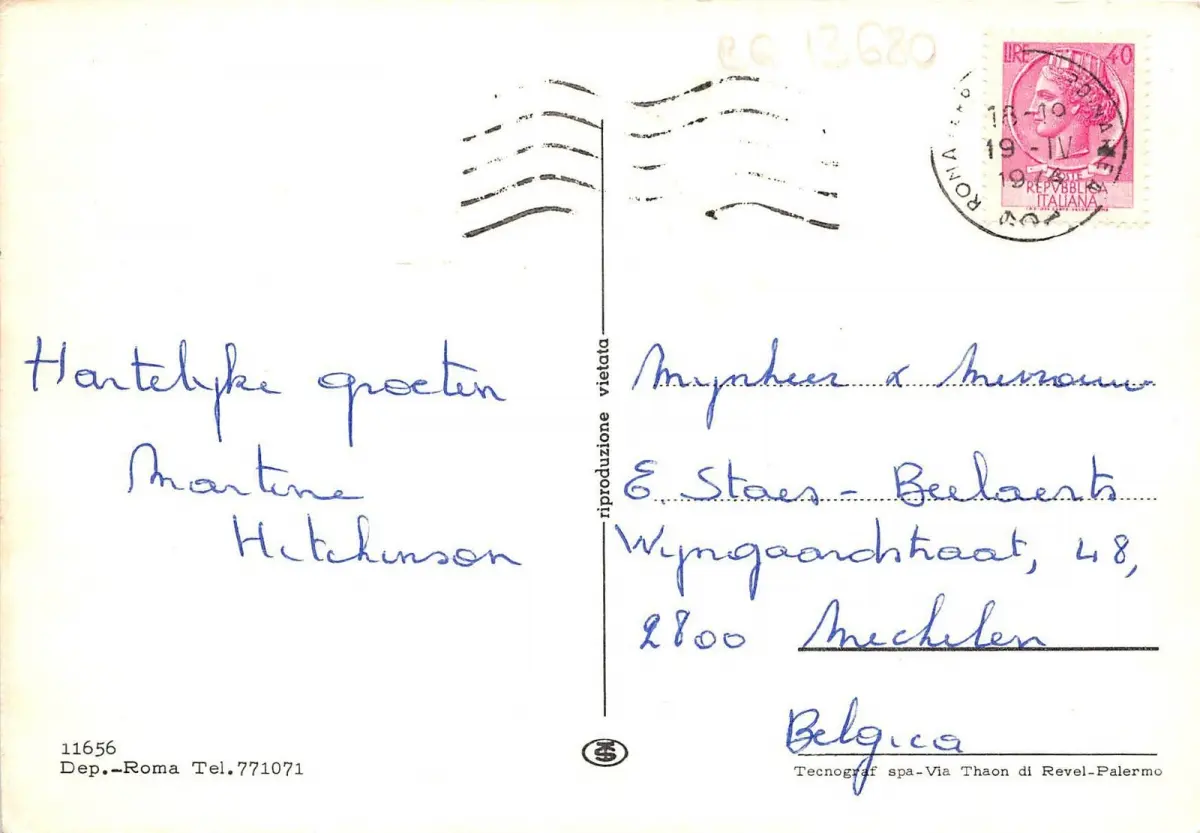 LIRE 40
ROMA
18-19
19-IV
POSTE
REPVBBLICA
ITALIANA
riproduzione vietata
Hartelyke groeten
Martine
Hitchinson
Mynheer & Mevrouw
E. Staes - Beelaerts
Wyngaardstraat, 48,
2800 Mechelen
Belgica
11656
Dep.-Roma Tel.771071
Tecnograf spa-Via Thaon di Revel-Palermo